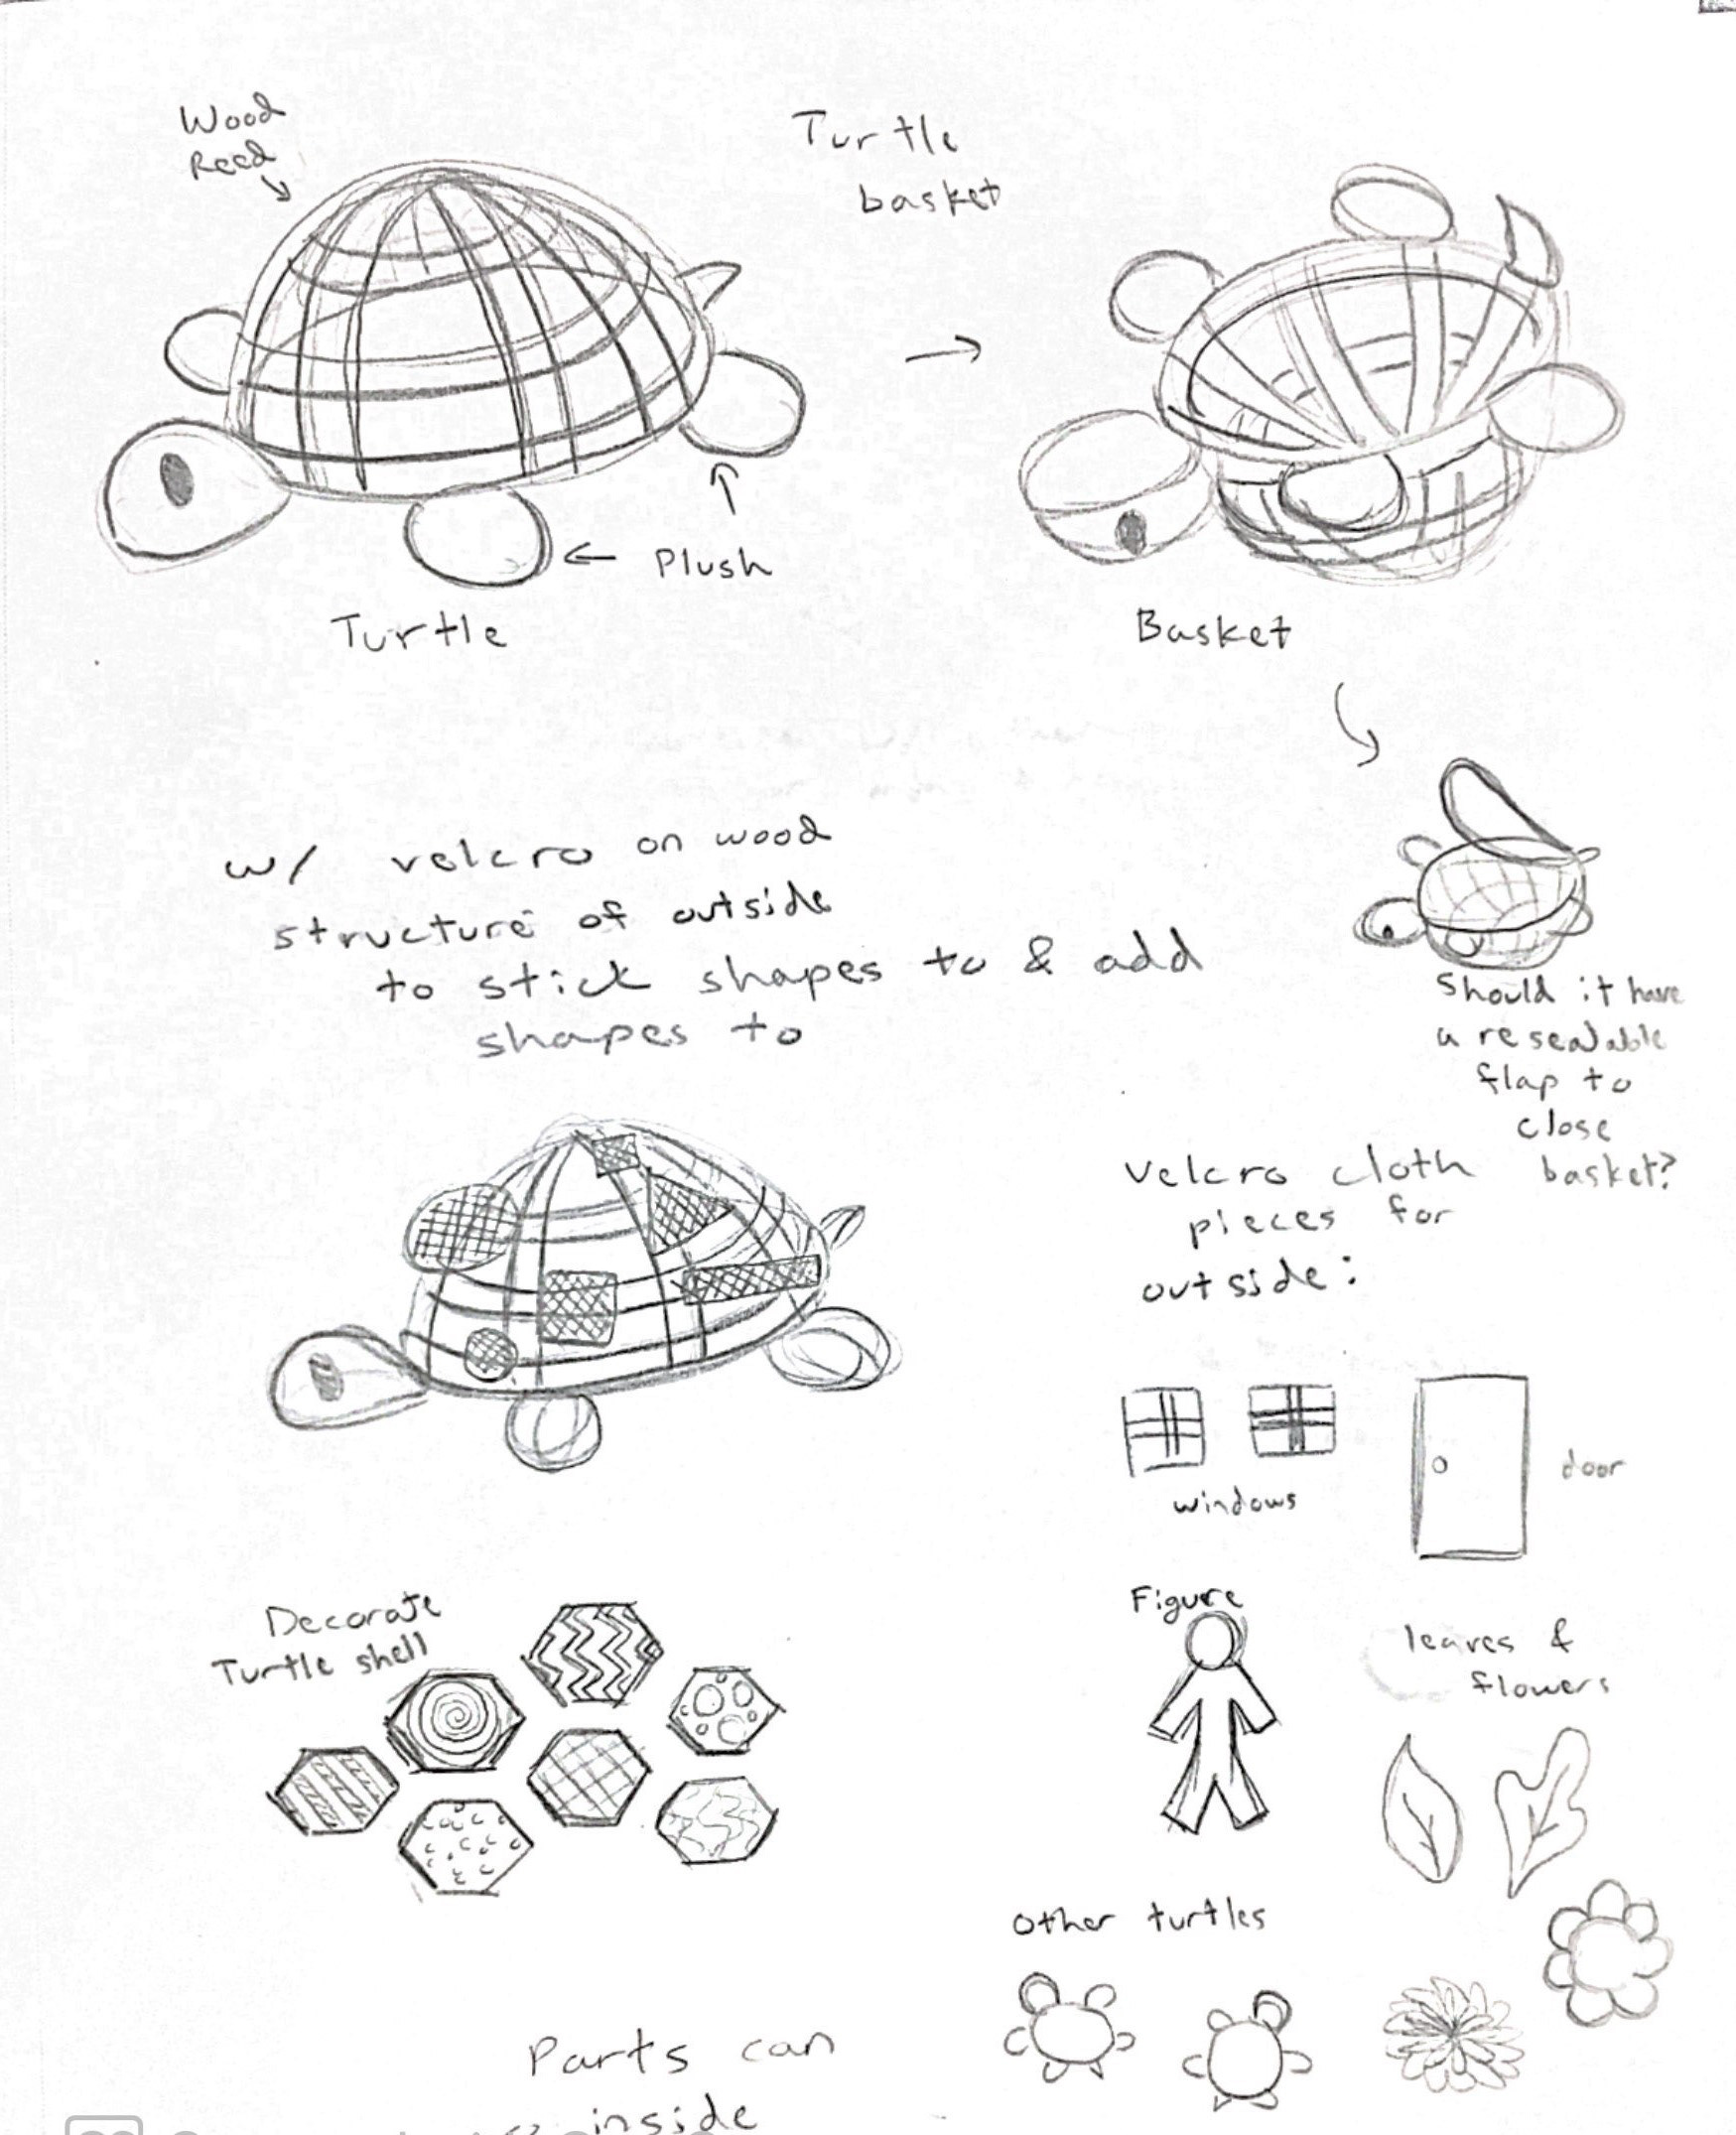 Wood
Reed
Turtle
basket
Plush
Turtle
Basket
w/ velcro on wood
structure of outside
to stick shapes to & add
shapes to
Should it have
a resealable
flap to
close
basket?
Velcro cloth
pieces for
outside:
windows
door
Decorate
Turtle shell
Figure
leaves &
flowers
Other turtles
Parts can
inside